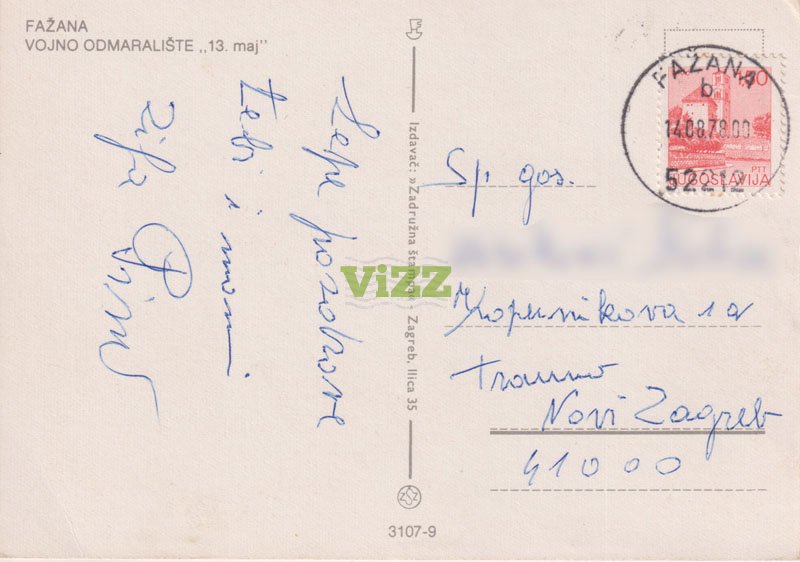 FAŽANA
VOJNO ODMARALIŠTE „13. maj"
Lepe pozdrave
tebi i mami
Izdavač: »Zadružna štampa« - Zagreb, Ilica 35
3107-9
FAŽANA
b
14.08.78.00
52212
JUGOSLAVIJA
PTT
Sp. gos.
Kopernikova 1a
Novi Zagreb
41000
ViZZ